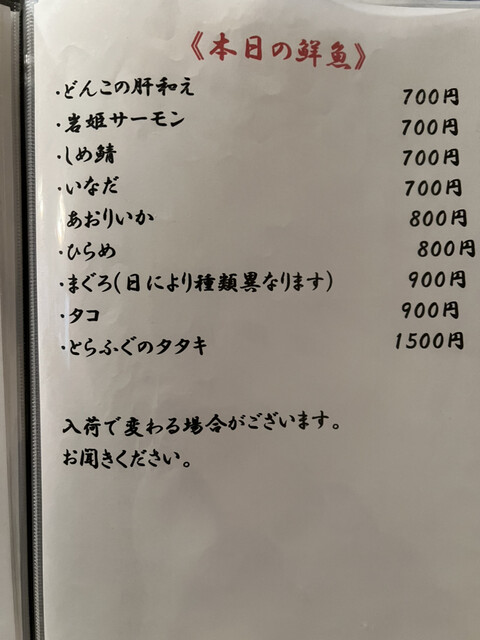 《本日の鮮魚》
・どんこの肝和え 700円
・岩姫サーモン 700円
・しめ鯖 700円
・いなだ 700円
あおりいか 800円
・ひらめ 800円
・まぐろ(日により種類異なります) 900円
・タコ 900円
・とらふぐのタタキ 1500円
入荷で変わる場合がございます。
お聞きください。